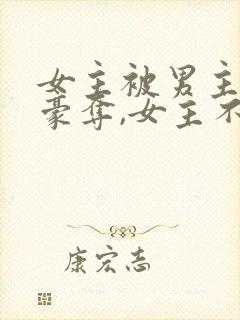 女主被男主
豪夺,女主不
康宏志